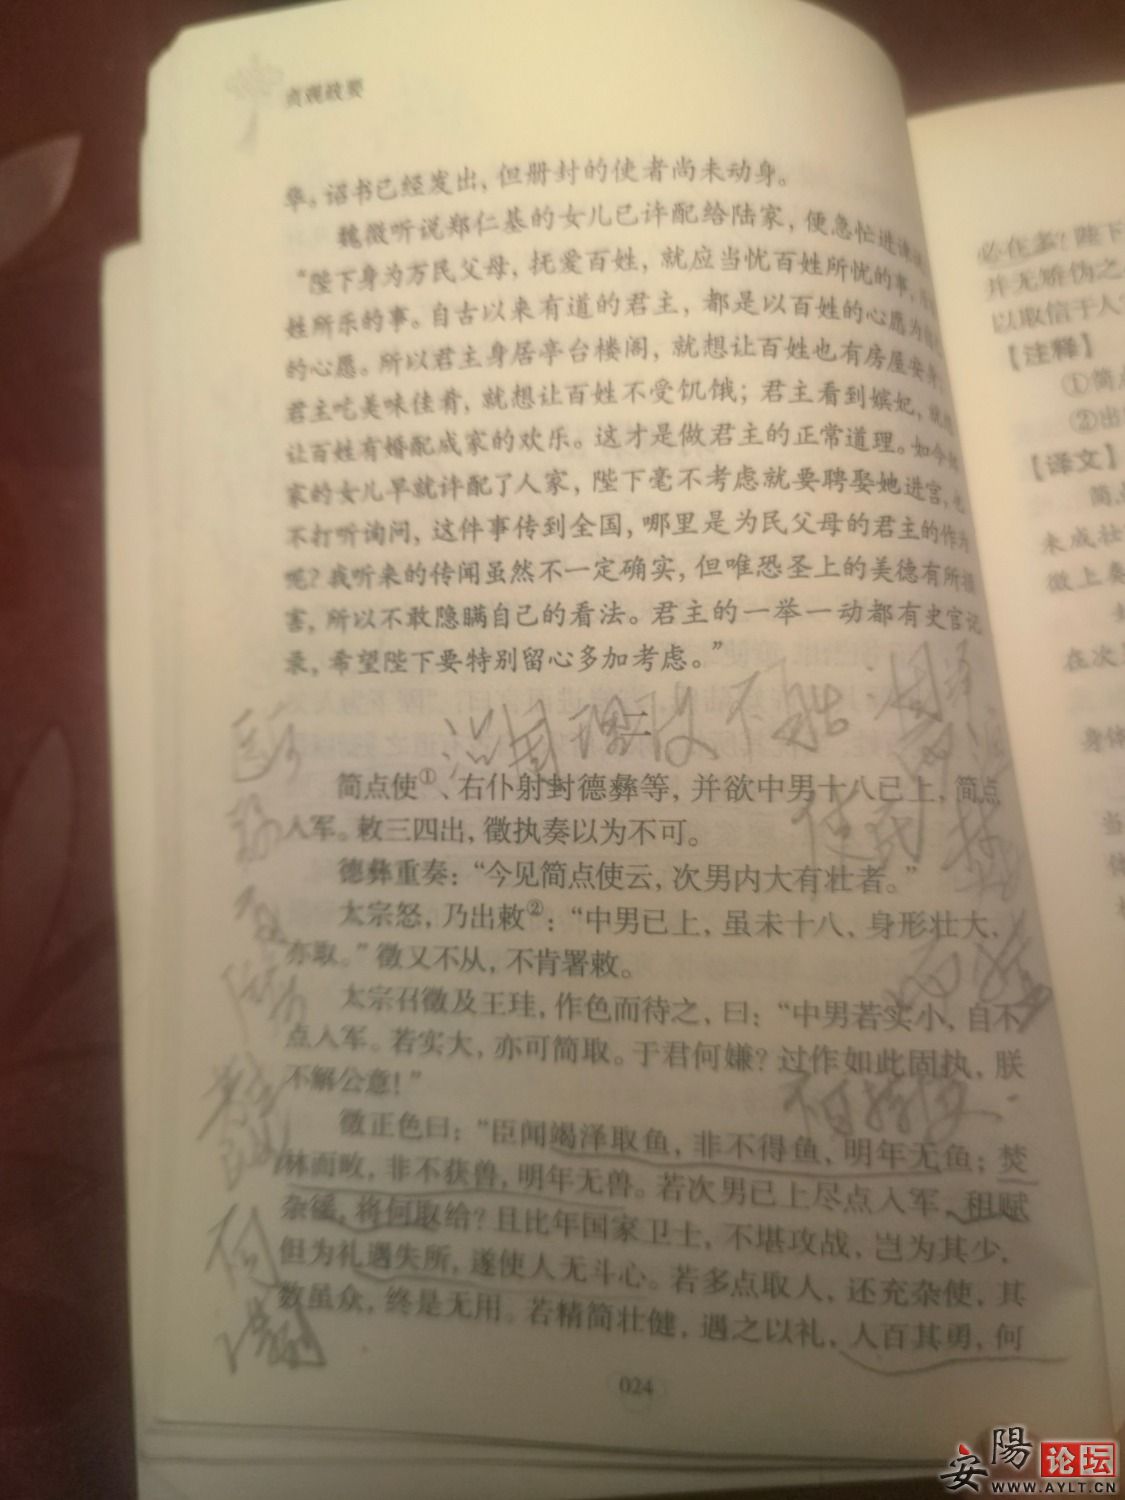 贞观政要
华。诏书已经发出，但册封的使者尚未动身。
魏徵听说郑仁基的女儿已许配给陆家，便急忙进谏
“陛下身为万民父母，抚爱百姓，就应当忧百姓所忧的事，
姓所乐的事。自古以来有道的君主，都是以百姓的心愿为
的心愿。所以君主身居亭台楼阁，就想让百姓也有房屋安身；
君主吃美味佳肴，就想让百姓不受饥饿；君主看到嫔妃，就
让百姓有婚配成家的欢乐。这才是做君主的正常道理。如今
家的女儿早就许配了人家，陛下毫不考虑就要聘娶她进宫，也
不打听询问，这件事传到全国，哪里是为民父母的君主的作为
呢？我听来的传闻虽然不一定确实，但唯恐圣上的美德有所损
害，所以不敢隐瞒自己的看法。君主的一举一动都有史官记
录，希望陛下要特别留心多加考虑。”
二
治国理政不
简点使①、右仆射封德彝等，并欲中男十八已上，简点
入军。敕三四出，徵执奏以为不可。
德彝重奏：“今见简点使云，次男内大有壮者。”
太宗怒，乃出敕②：“中男已上，虽未十八，身形壮大，
亦取。”徵又不从，不肯署敕。
太宗召徵及王珪，作色而待之，曰：“中男若实小，自不
点入军。若实大，亦可简取。于君何嫌？过作如此固执，朕
不解公意！”
徵正色曰：“臣闻竭泽取鱼，非不得鱼，明年无鱼；焚
林而畋，非不获兽，明年无兽。若次男已上尽点入军，租赋
杂徭，将何取给？且比年国家卫士，不堪攻战，岂为其少，
但为礼遇失所，遂使人无斗心。若多点取人，还充杂使，其
数虽众，终是无用。若精简壮健，遇之以礼，人百其勇，何
024
必在多？陛下
并无矫伪之
以取信于人
【注释】
①简点
②出
【译文】
简点
未成壮
徵上奏
在次
身体
当
安陽论坛
WWW.AYLT.CN